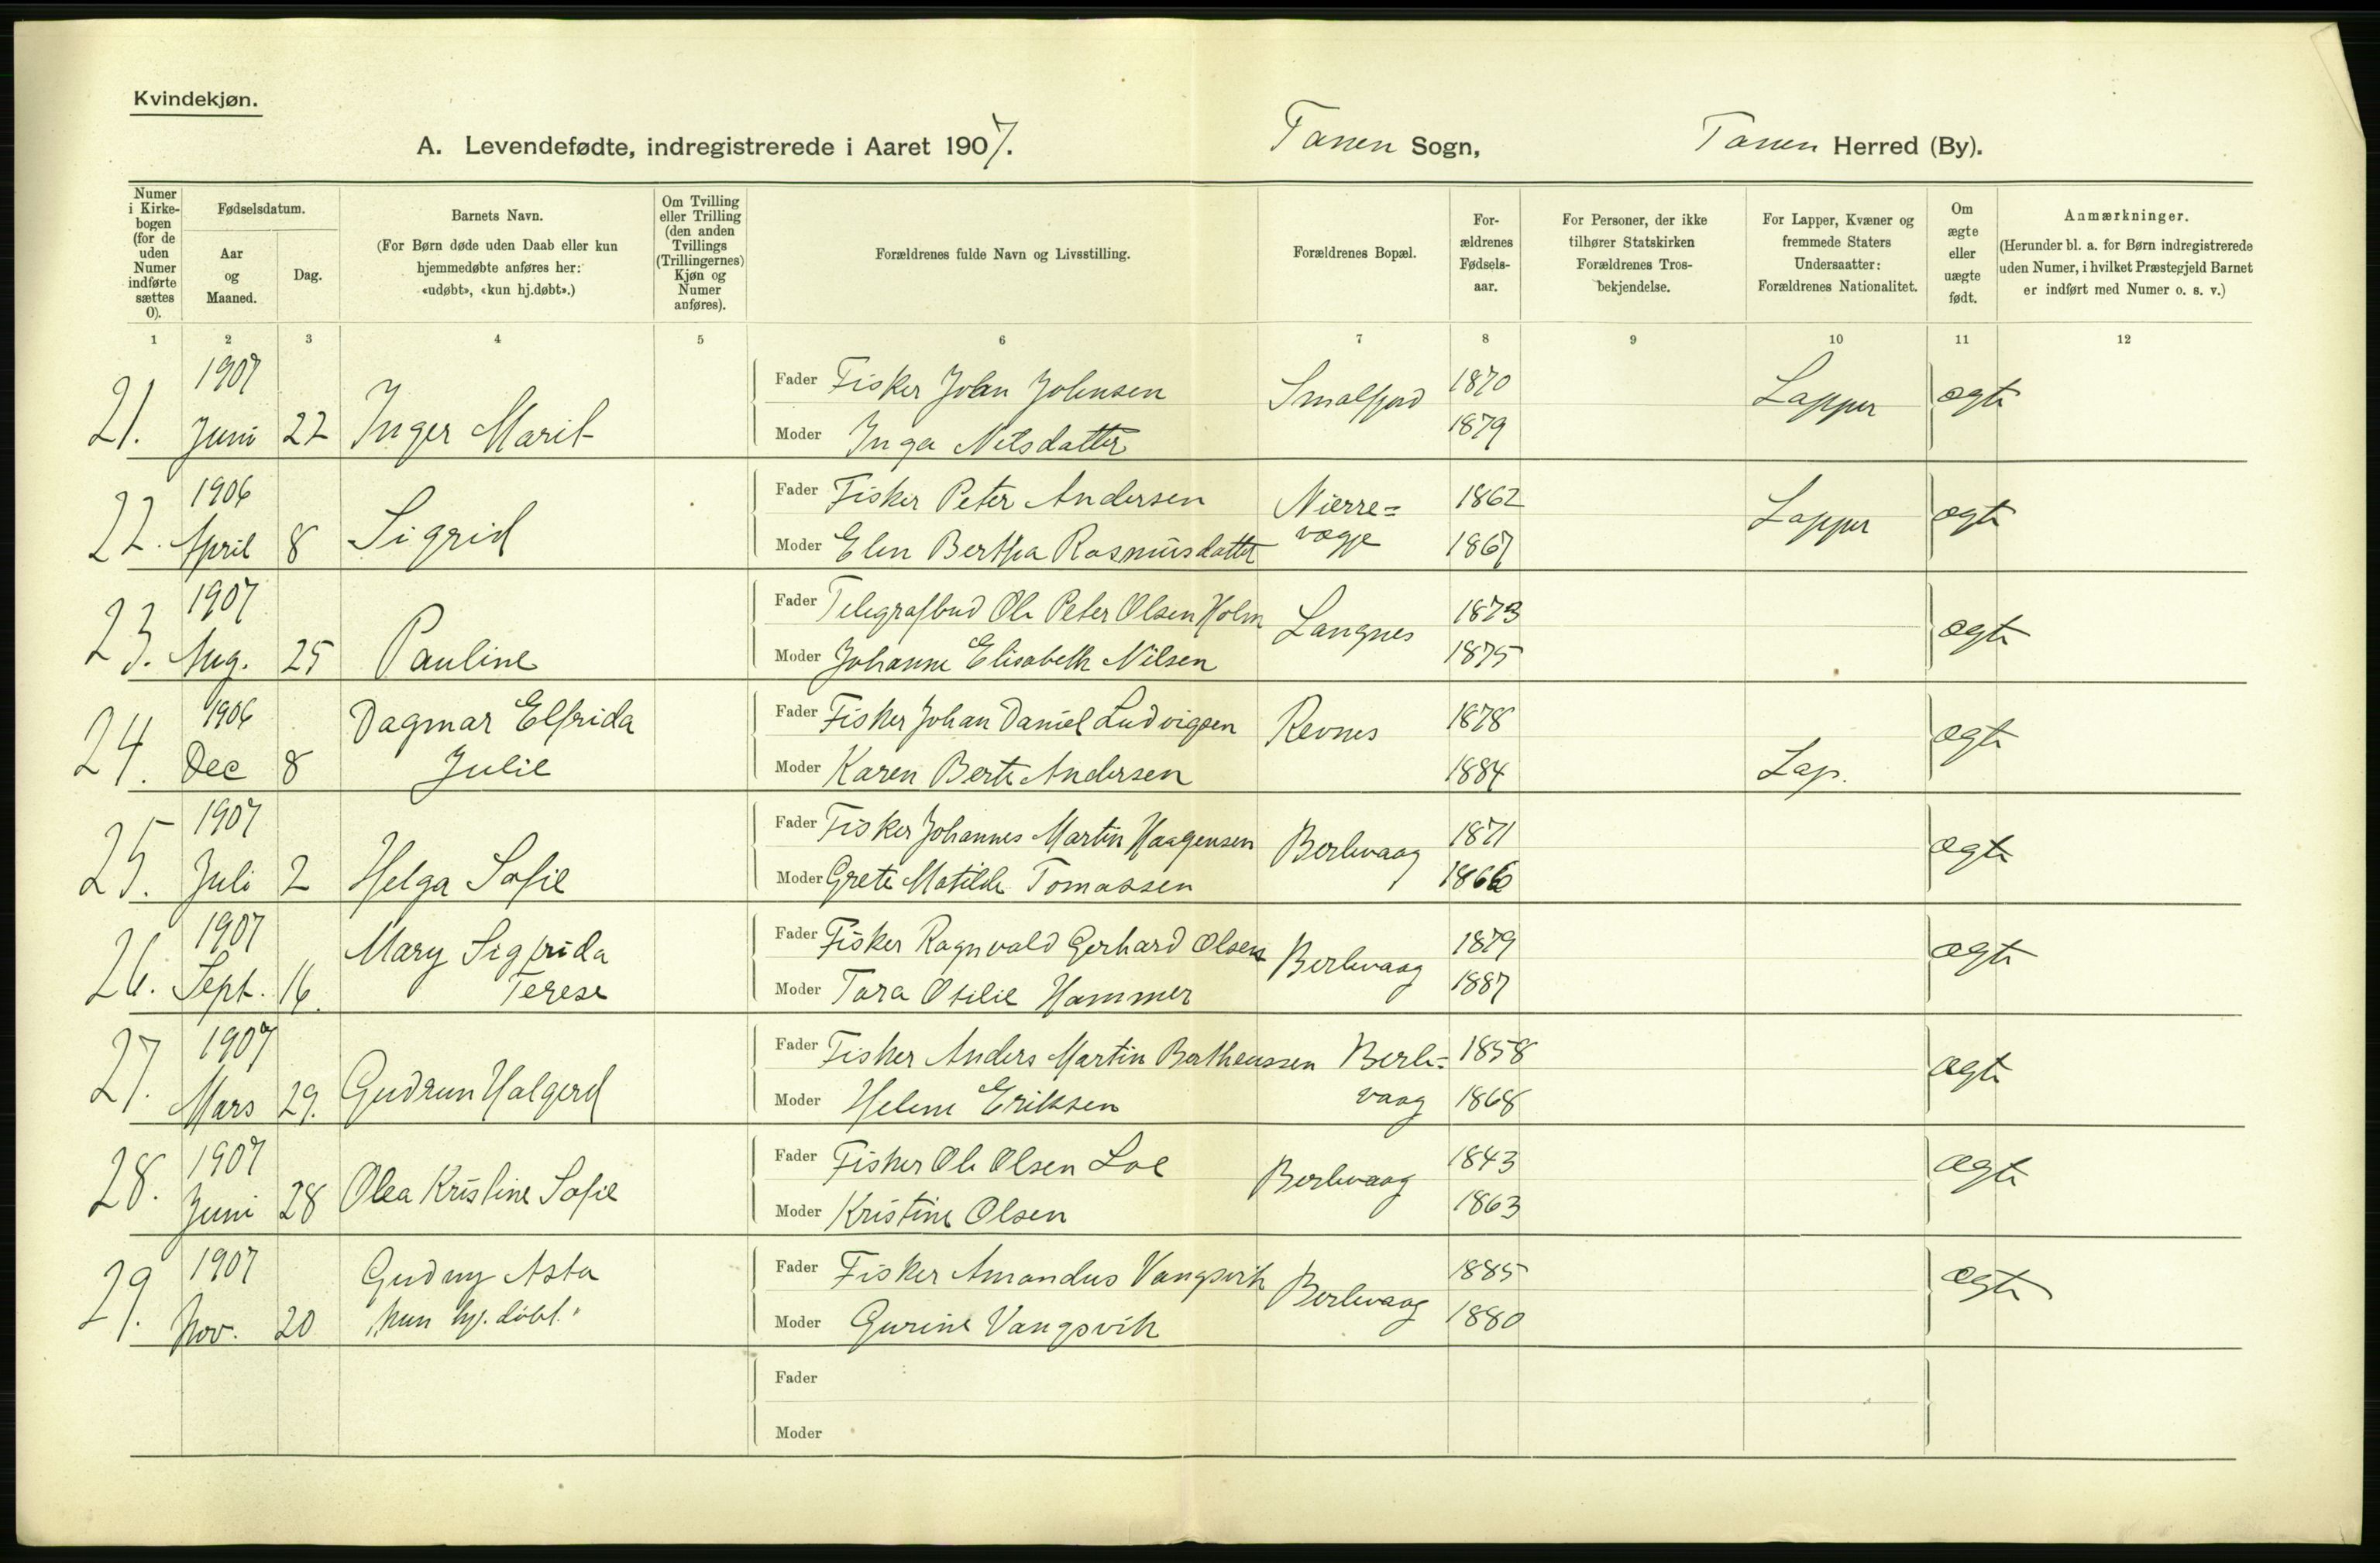 Kvindekjøn.
A. Levendefødte, indregistrerede i Aaret 1907. Tanen Sogn, Tanen Herred (By).
Numer i Kirkebogen (for de uden Numer indførte sættes 0).
Fødselsdatum.
Aar og Maaned.
Dag.
Barnets Navn.
(For Børn døde uden Daab eller kun hjemmedøbte anføres her: «udøbt», «kun hj.døbt».)
Om Tvilling eller Trilling (den anden Tvillings (Trillingernes) Kjøn og Numer anføres).
Forældrenes fulde Navn og Livsstilling.
Forældrenes Bopæl.
Forældrenes Fødselsaar.
For Personer, der ikke tilhører Statskirken Forældrenes Trosbekjendelse.
For Lapper, Kvæner og fremmede Staters Undersaatter: Forældrenes Nationalitet.
Om ægte eller uægte født.
Anmærkninger.
(Herunder bl. a. for Børn indregistrerede uden Numer, i hvilket Præstegjeld Barnet er indført med Numer o. s. v.)
1 2 3 4 5 6 7 8 9 10 11 12
1907 Fader Fisker Johan Johnsen Smalfjord 1870 Lapper ægte
21. Juni 22 Inger Marit Moder Inga Nilsdatter 1879
1906 Fader Fisker Peter Andersen Nierre= 1862 Lapper ægte
22. April 8 Sigrid Moder Elen Bertha Rasmusdatter vagge 1867
1907 Fader Telegrafbud Ole Peter Olsen Holm Langnes 1873 ægte
23. Aug. 25 Pauline Moder Johanne Elisabeth Nilsen 1875
1906 Dagmar Elfrida Fader Fisker Johan Daniel Ludvigsen Revnes 1878 ægte
24. Dec 8 Julie Moder Karen Berte Andersen 1884 Lap.
1907 Fader Fisker Johannes Martin Haagensen Berlevaag 1871 ægte
25. Juli 2 Helga Sofie Moder Grete Matilde Tomassen 1866
1907 Mary Sigfrida Fader Fisker Ragnvald Gerhard Olsen Berlevaag 1879 ægte
26. Sept. 16. Terese Moder Tora Otilie Hammer 1887
1907 Fader Fisker Anders Martin Bertheussen Berle= 1858 ægte
27. Mars 29. Gudrun Halgerd Moder Helene Eriksen vaag 1868
1907 Fader Fisker Ole Olsen Loe Berlevaag 1843 ægte
28. Juni 28 Olea Kristine Sofie Moder Kristine Olsen 1863
1907 Gudny Asta Fader Fisker Amandus Vangsvik Berlevaag 1885 ægte
29. Nov. 20 "kun hj. døbt." Moder Gurine Vangsvik 1880
Fader
Moder